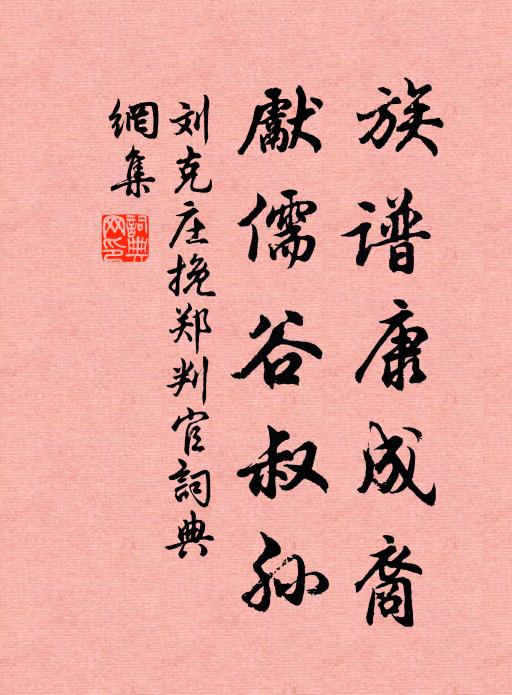 族谱康成裔
献儒谷叔孙
刘克庄挽郑判官詞典
網集
詞典網印